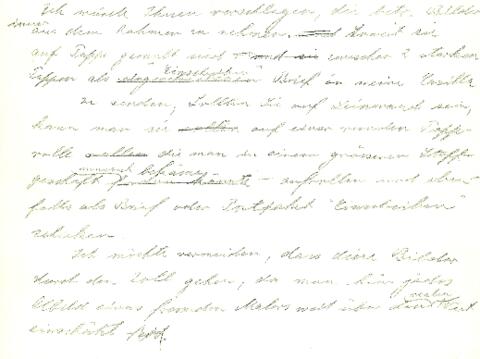 Ich würde Ihnen vorschlagen, die betr. Bilder
immer aus dem Rahmen zu nehmen. Soweit sie
auf Pappe gemalt sind und sie zwischen 2 starken
Pappen als Einschreiben Brief an meine
zu senden, Sollten Sie auf Leinwand sein,
kann man sie auf einer runden Papp-
rolle die man in einem grösseren Stoffe
geschäft umsonst bekäme aufrollen und eben-
falls als Brief oder Postpaket "Einschreiben"
schicken.
Ich möchte vermeiden, dass diese Bilder
durch den Zoll gehen, da man hier jedes
Bild eines fremden Malers weit über den realen Wert
einschätzt